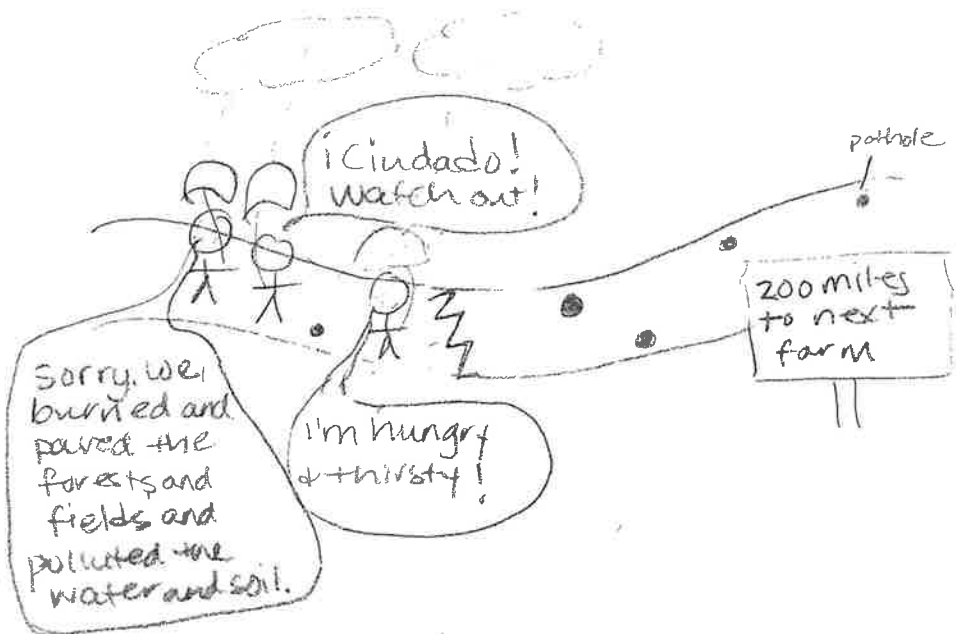 ¡Ciudado!
watch out!
pothole
200 miles
to next
farm
Sorry, we
burned and
paved the
forests and
fields and
polluted the
water and soil.
I'm hungry
& thirsty!